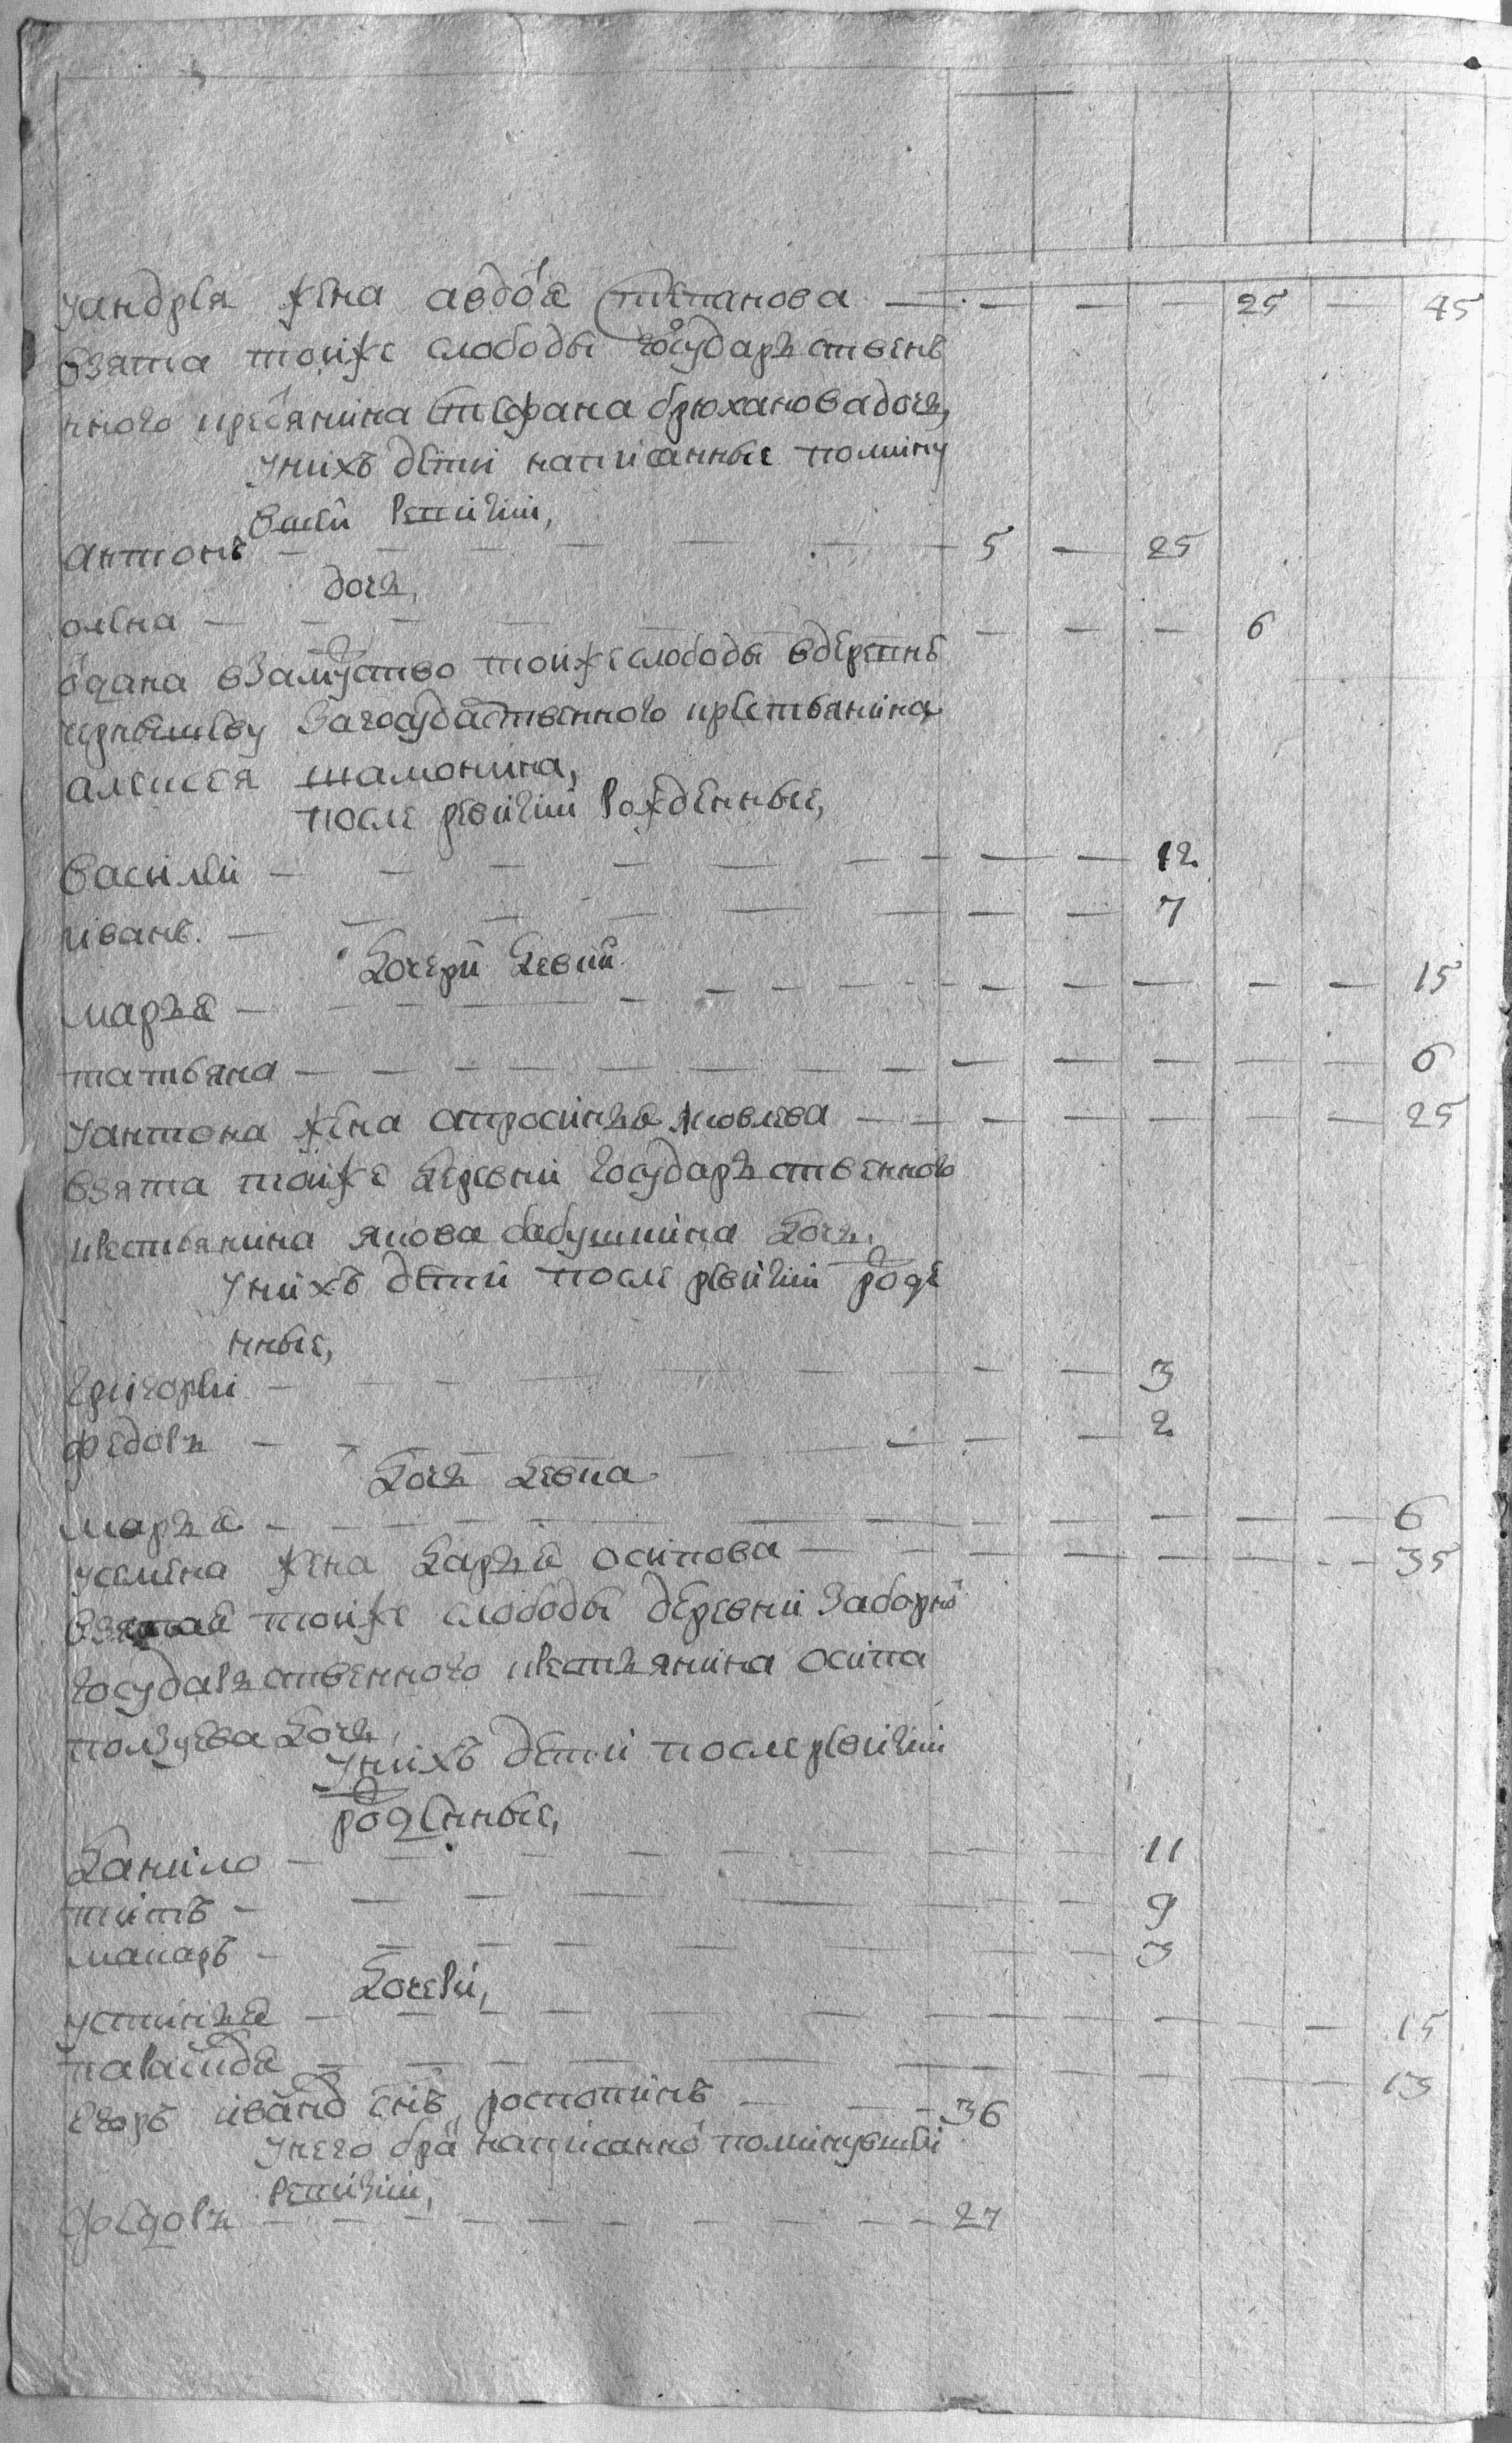 уандрея жена авдотя степанова — — — 25 — 45
взята тойже слободы государъственъ
нного кресянина стефана брюханова дочъ,
унихъ дети написанные помину
вшей ревизии,
антонъ — 5 — 25
дочъ,
олена — — — 6
отдана взамуство тойже слободы вдеревнѣ
чернышеву загосударственного крестьянина
алексея шамонина,
после ревизии рожденные,
василей — — — 12
иванъ — — — 7
дочери девки
маръя — — — 15
татьяна — — — 6
уантона жена апросинъя яковлева — — — 25
взята тойже деревни государъственного
крестьянина якова бабушкина дочъ,
унихъ дети после ревизии рожде
нные,
григорей — — — 3
федоръ — — — 2
дочъ девка
маръя — — — 6
усемена жена даръя осипова — — — 35
взятая тойже слободы деревни заборно
государъственного крестъянина осипа
ползуева дочъ,
унихъ дети послеревизии
рожденные,
данило — — — 11
титъ — — — 9
макаръ — — — 3
дочери,
устинъя — — — 15
парасковдя — — — 13
егоръ иванов снъ роспопинъ — — — 36
унего бра написанно поминувшей
ревизии,
фседоръ — — — 27